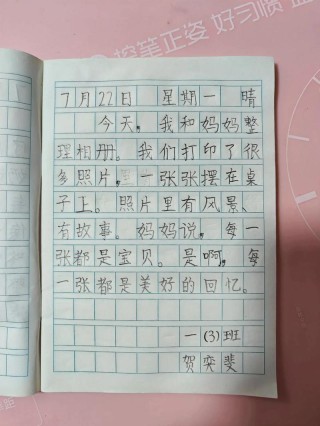 控笔正姿 好习惯
7月22日 星期一 晴
今天，我和妈妈整
理相册。我们打印了很
多照片，一张张摆在桌
子上。照片里有风景、
有故事。妈妈说，每一
张都是宝贝。是啊，每
一张都是美好的回忆。
一(3)班
贺奕斐